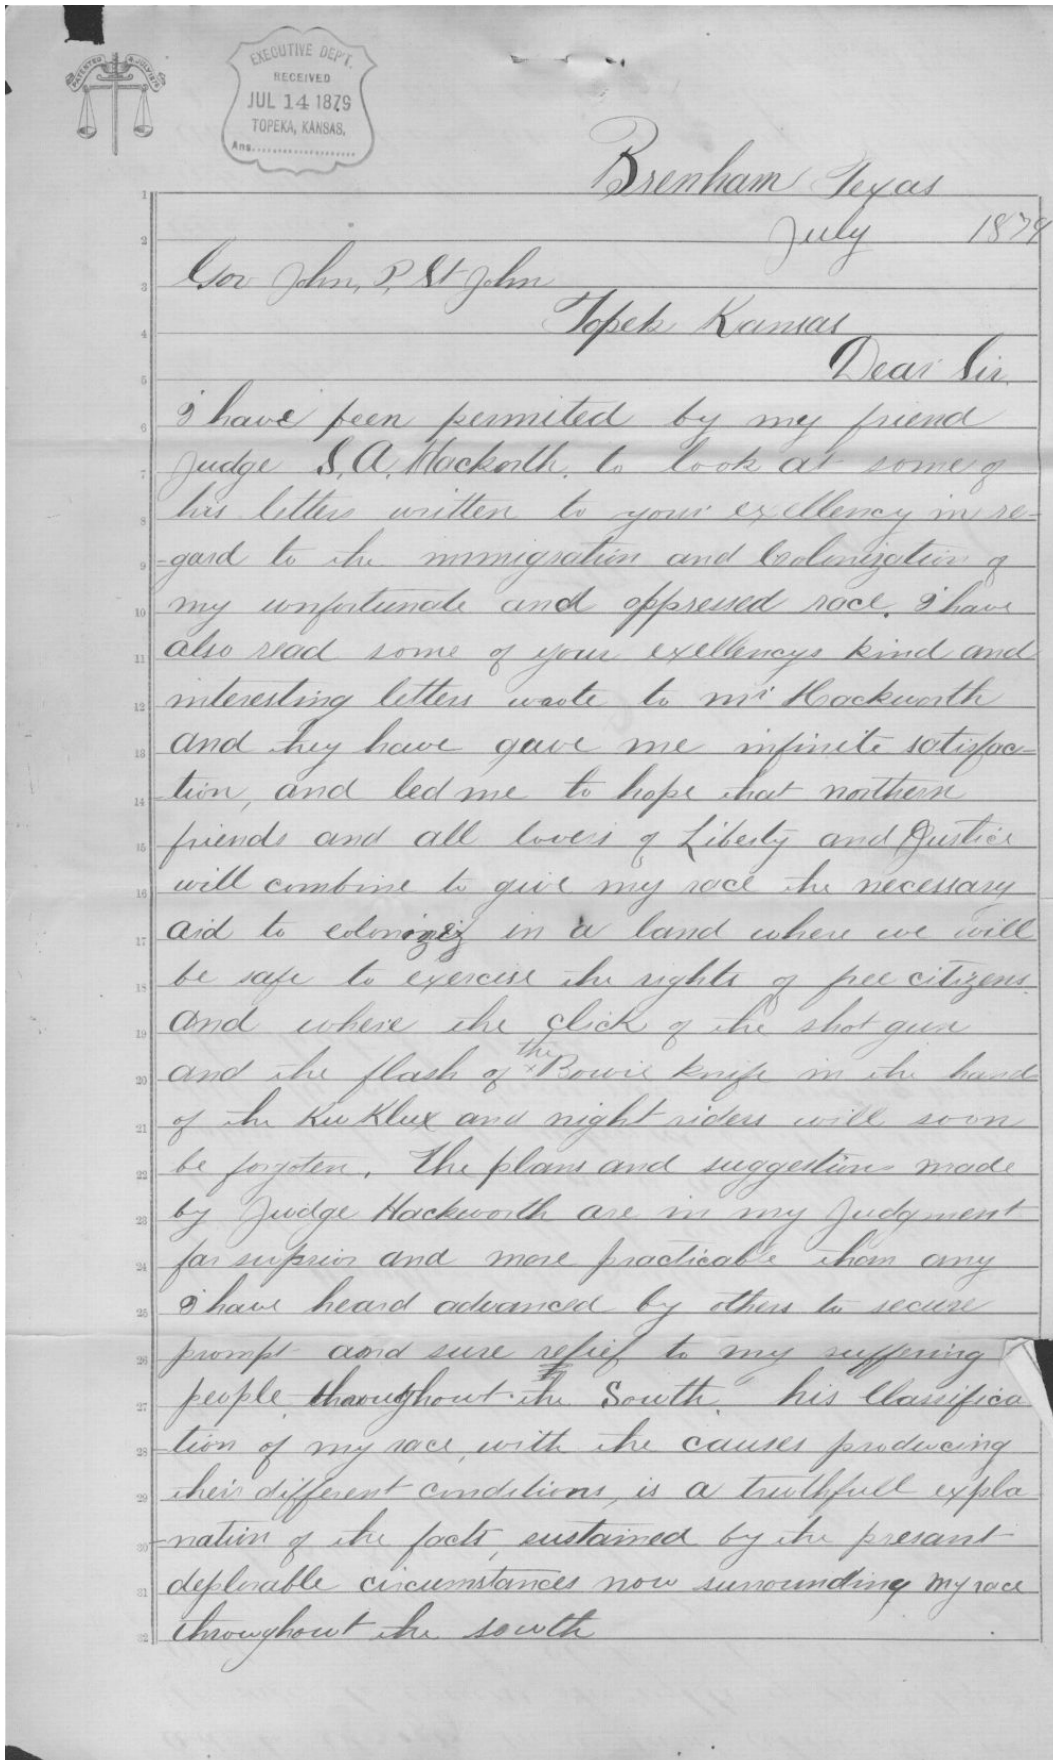 PATENTED
EXECUTIVE DEP'T.
RECEIVED
JUL 14 1879
TOPEKA, KANSAS.
Ans.
Brenham Texas
1
July 1879
2
Gov John, P, St John
3
Topek Kansas
4
Dear Sir.
5
I have been permited by my friend
6
Judge S. A. Hackorth. to look at some of
7
his letters written to your exellency in re-
8
-gard to the immigration and Colonization of
9
my unfortunate and oppressed race. I have
10
also read some of your exellencys kind and
11
interesting letters wrote to Mr Hackworth
12
and they have gave me infinite satisfac-
13
tion, and led me to hope that northern
14
friends and all lovers of Liberty and Justice
15
will combine to give my race the necessary
16
aid to in a land where we will
17
be safe to exercise the rights of free citizens.
18
and where the click of the shot gun
19
and the flash of the Bowie knife in the hand
20
of the Ku Klux and night riders will soon
21
be forgoten. The plans and suggestions made
22
by Judge Hackworth are in my Judgment
23
far suprior and more practicable than any
24
I have heard advanced by others to secure
25
prompt and sure relief to my suffering
26
people throughout the South. his Classifica
27
tion of my race, with the causes producing
28
their different conditions, is a truthfull expla
29
-nation of the facts, sustained by the presant
30
deplorable circumstances now surrounding my race
31
throughout the south
32